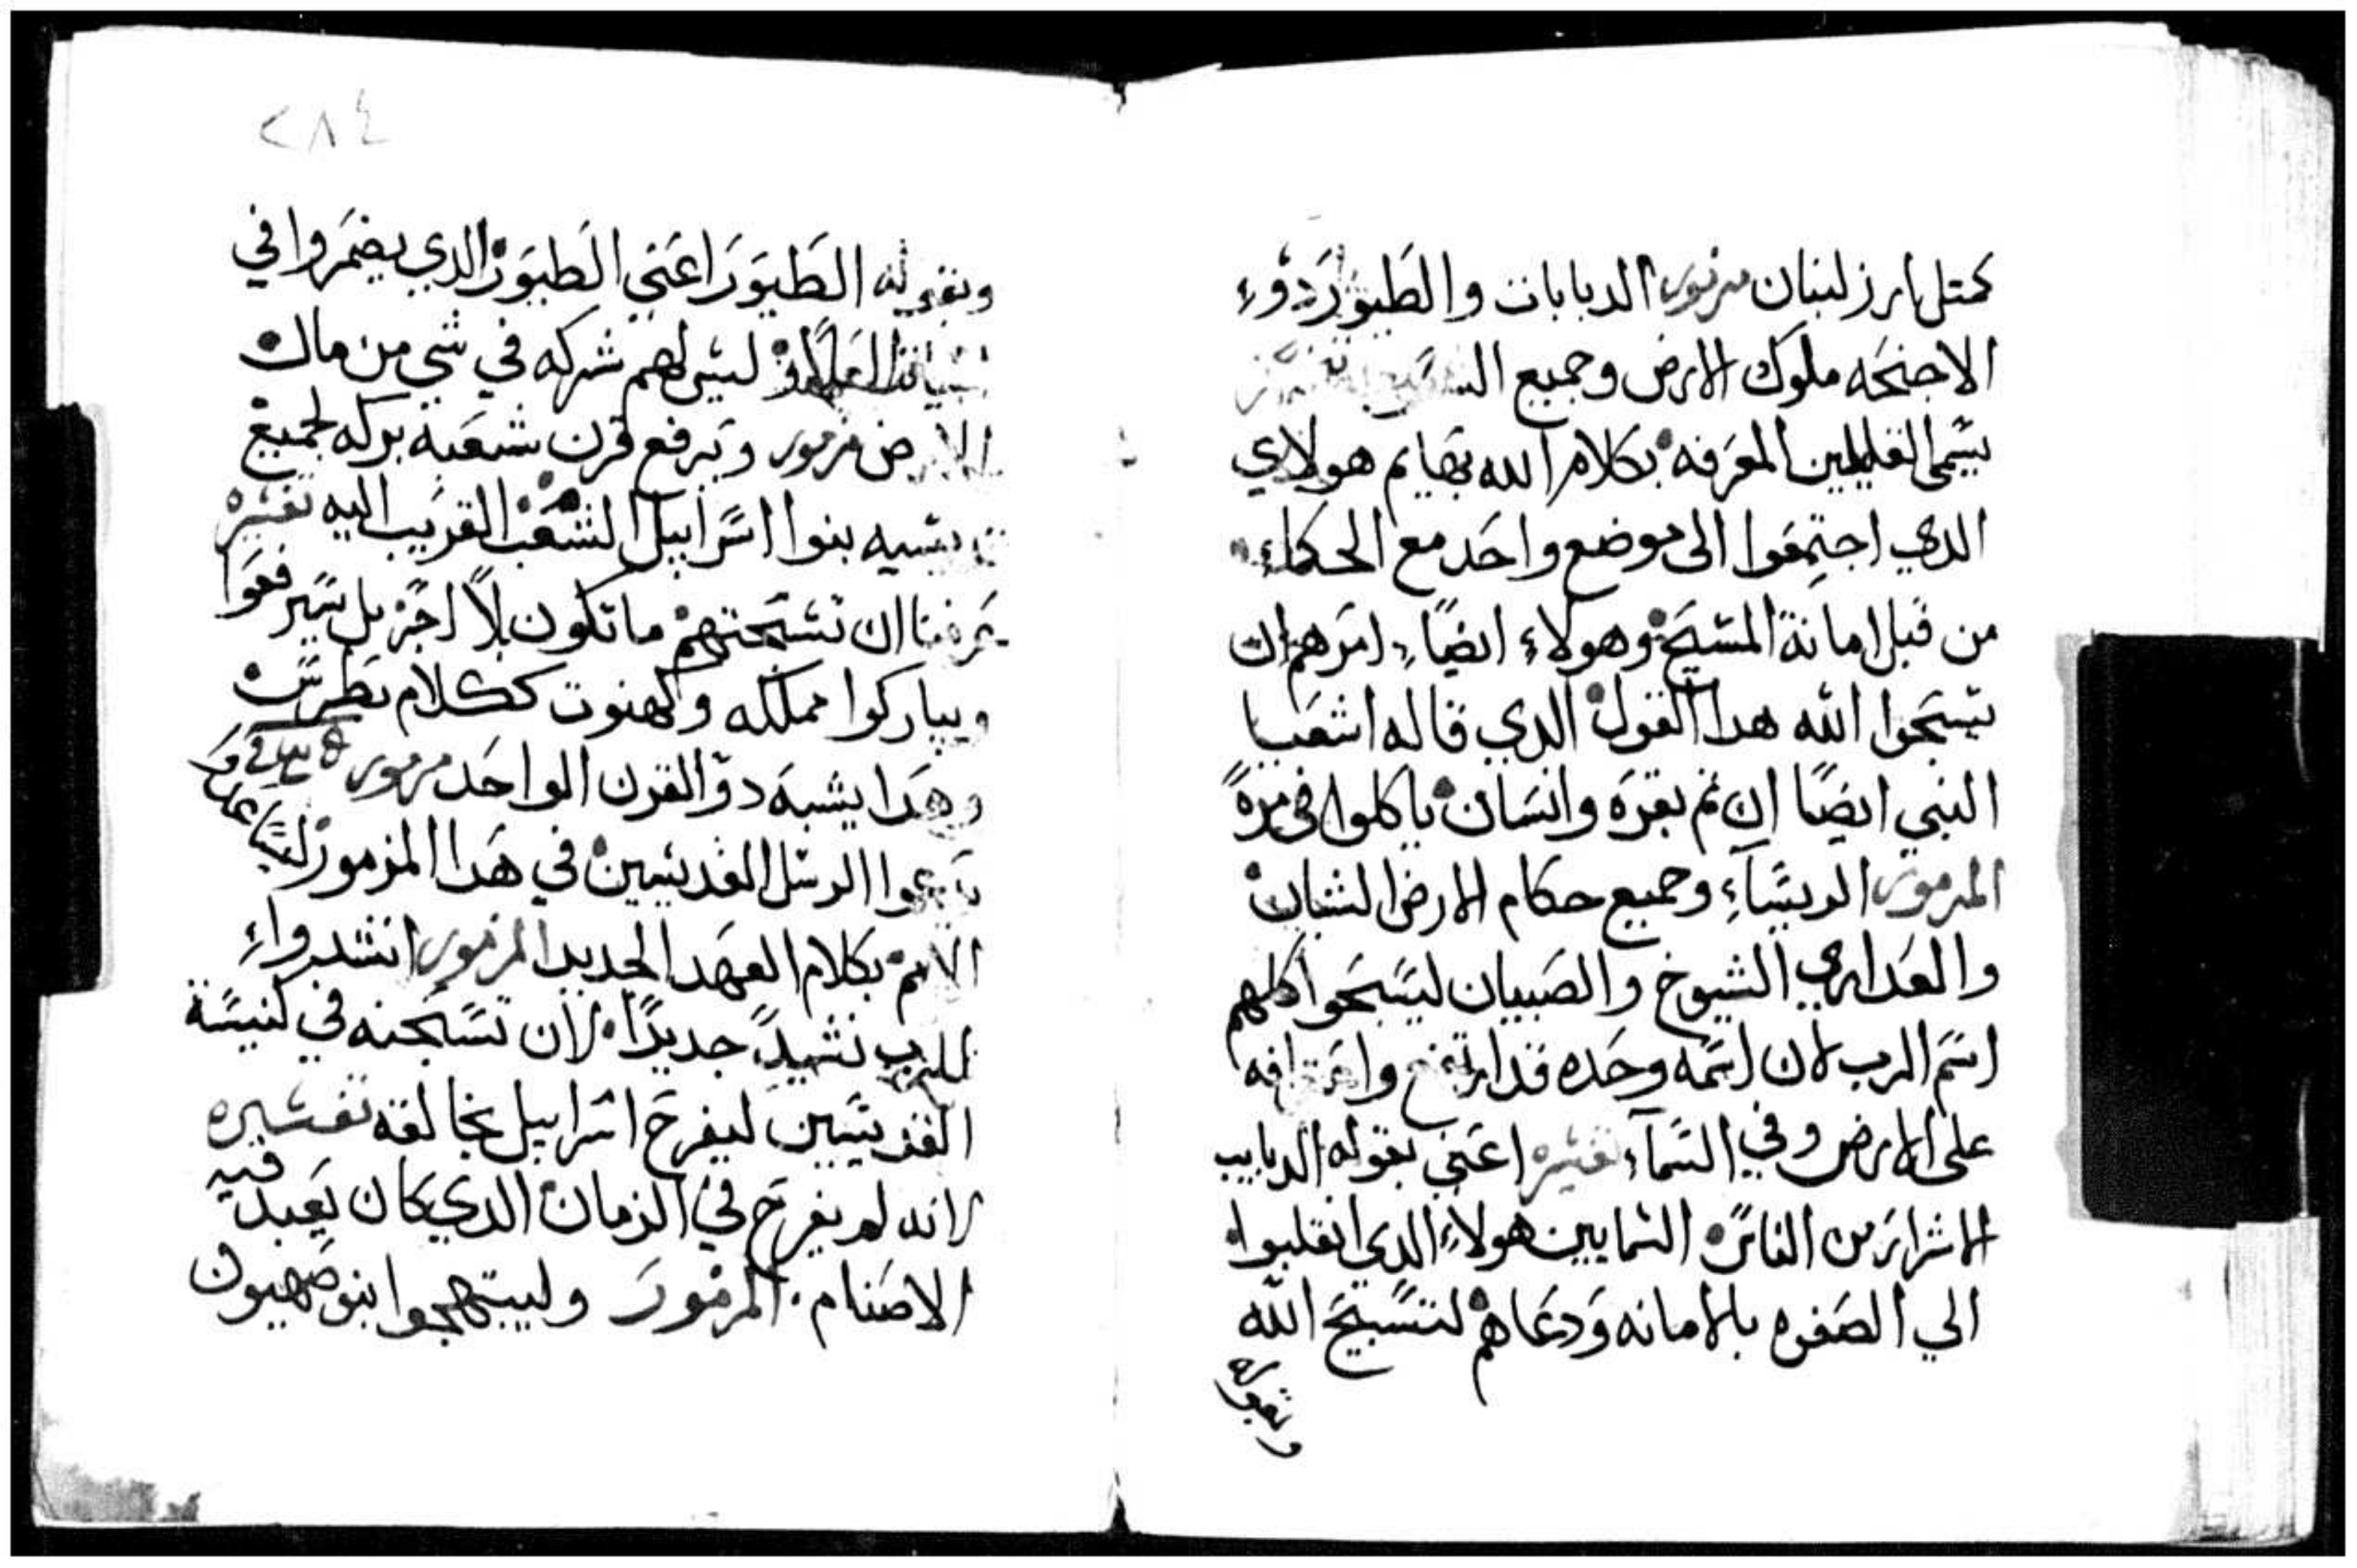 كمتل ارز لبنان مزمور الدبابات والطيور دوء
الاجنحه ملوك الارض وجميع
يسمى القليلين المعرفه بكلام الله بهايم هولاي
الدي اجتمعوا الى موضع واحد مع الحكماء
من قبل امانة المسيح وهولاء ايضاً امرهم ان
يسبحوا الله هدا القول الدي قاله اشعيا
النبي ايضًا ان تم بقره وانسان ياكلوا في مرةً
المزمور الريساء وجميع حكام الارض الشبان
والعدارى الشيوخ والصبيان ليسبحوا كلهم
اسم الرب لان اسمه وحده قد ارتفع واعترافه
على الارض وفي السماء تفسيره اعني بقوله الدبايب
الاشرار من الناس السمايين هولاء الدي انقلبوا
الي الصفره بالامانه ودعاهم لتسبيح الله
وبقوله
٢٨٤
وبقوله الطيور اعني الطيور الدي يضمروا في
ليس لهم شركه في شي من مال
الارض مزمور وترفع قرن شعبه بركه لجميع
قديسيه بنوا اسراييل الشعب القريب اليه تفسيره
يعرفنا ان تسبحتهم ما تكون بلا اجر بل سيرفعوا
ويباركوا مملكه وكهنوت ككلام بطرس
وهدا يشبه دو القرن الواحد مزمور
يدعوا الرسل القديسين في هدا المزمور
الامم بكلام العهد الجديد المزمور انشدواء
للرب نشيداً جديدًا لان تسبحته في كنيسة
القديسين ليفرح اسراييل بخالقه تفسيره
لانه لم يفرح في الزمان الدي كان يعبد فيه
الاصنام المزمور وليبتهجوا بنو صهيون